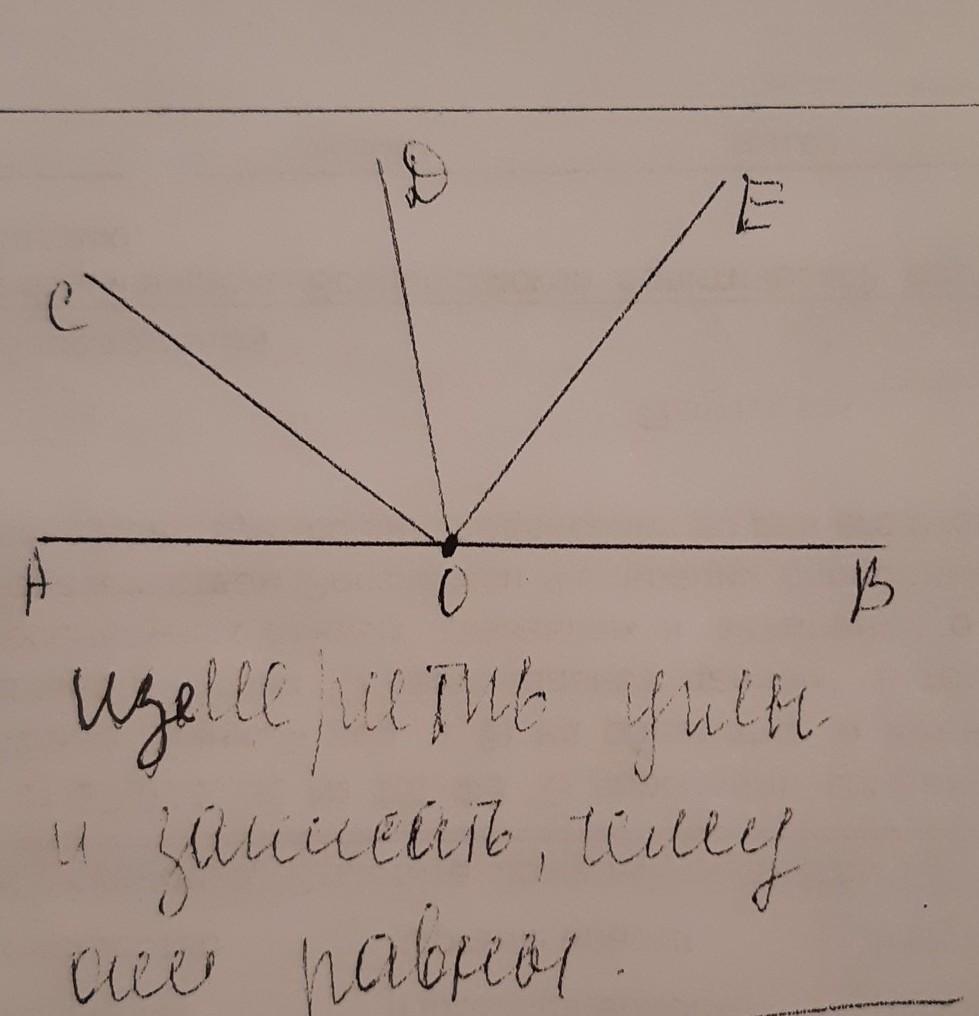 D
E
C
A O B
измерить углы
и записать, чему
они равны.